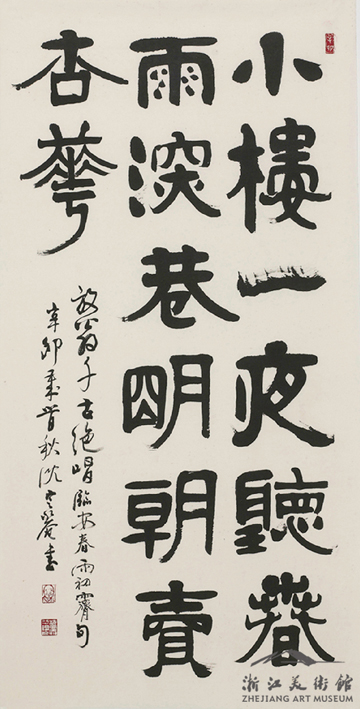 小樓一夜聽春
雨深巷明朝賣
杏華
放翁千古絶唱臨安春雨初霽句
辛卯年首秋沈定庵書
浙江美術館
ZHEJIANG ART MUSEUM